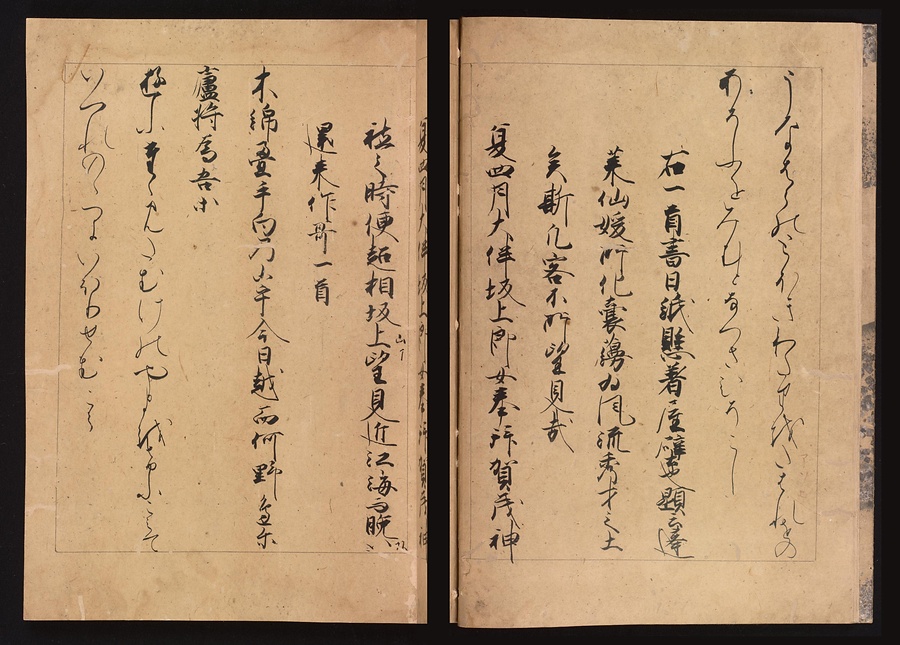 うなはらのとほきわたりをたはれをの
あそふをみむとなつさひそこし
右一首書白紙懸著屋壁也題云蓬
莱仙媛所化嚢蘰為風流秀才之士
矣斯凡客不所望見哉
夏四月大伴坂上郎女奉拝賀茂神
社之時便超相坂上望見近江海而晩
還来作哥一首
木綿畳手向乃山乎今日越而何野邊尓
廬将為吾等
ゆふたゝみたむけのやまをけふこえて
いつれのゝへにいほりせむ